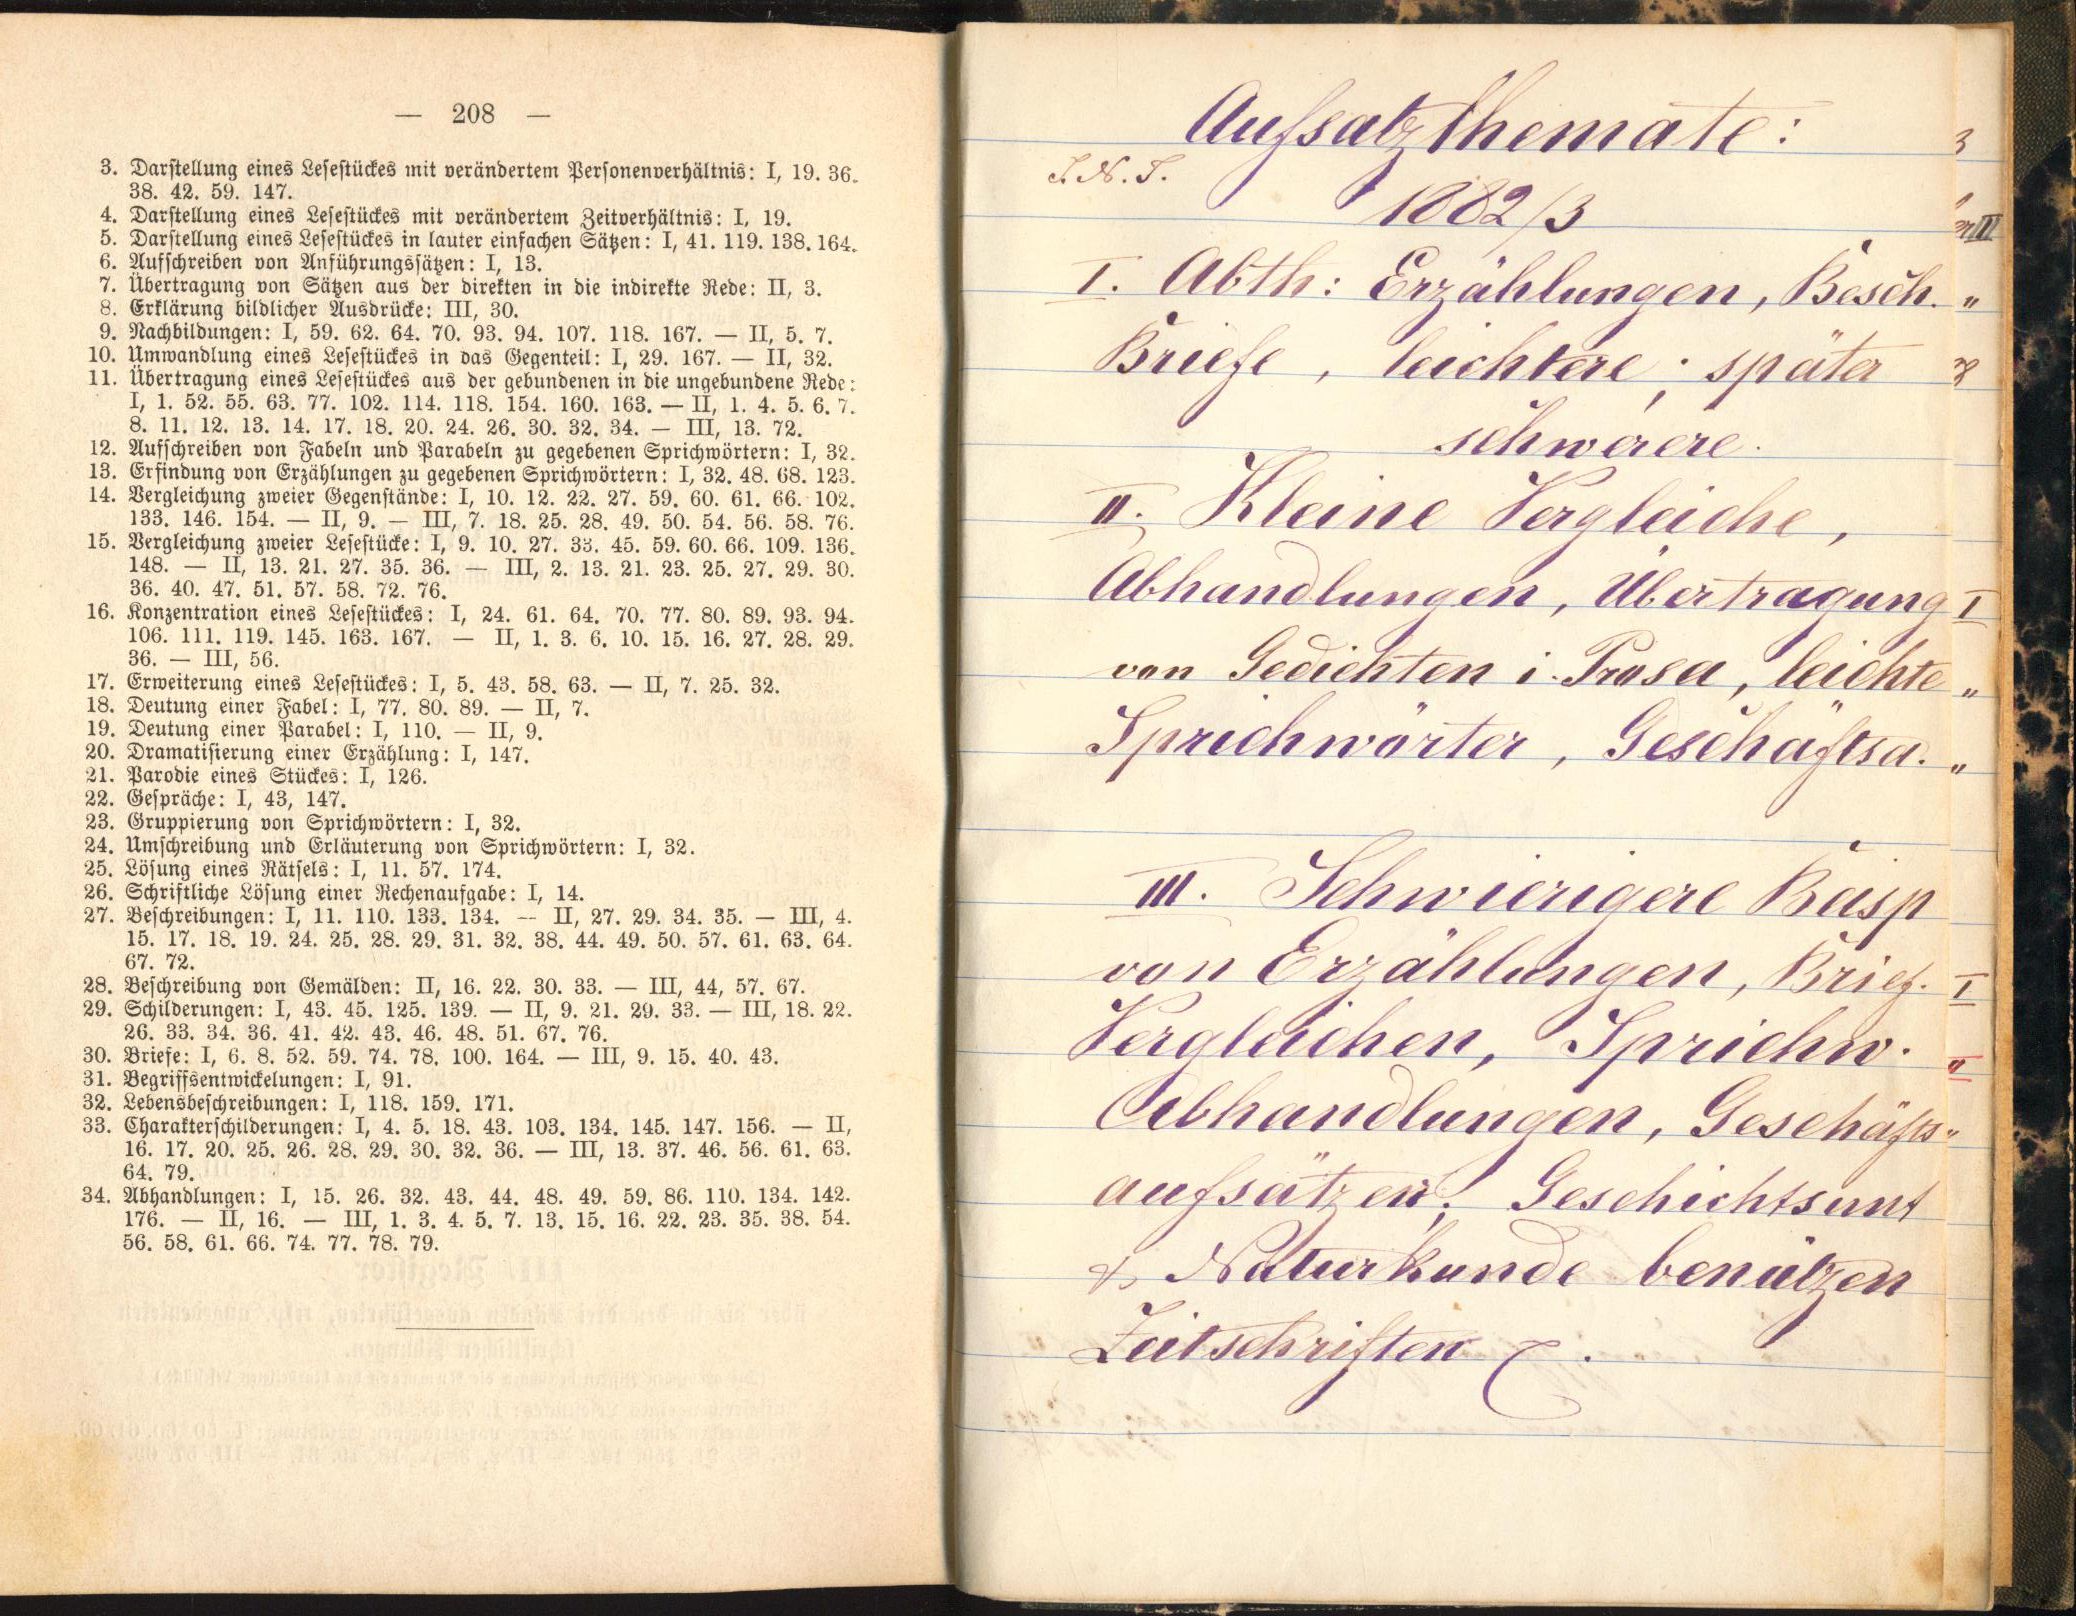 — 208 —
3. Darstellung eines Lesestückes mit verändertem Personenverhältnis: I, 19. 36.
38. 42. 59. 147.
4. Darstellung eines Lesestückes mit verändertem Zeitverhältnis: I, 19.
5. Darstellung eines Lesestückes in lauter einfachen Sätzen: I, 41. 119. 138. 164.
6. Aufschreiben von Anführungssätzen: I, 13.
7. Übertragung von Sätzen aus der direkten in die indirekte Rede: II, 3.
8. Erklärung bildlicher Ausdrücke: III, 30.
9. Nachbildungen: I, 59. 62. 64. 70. 93. 94. 107. 118. 167. — II, 5. 7.
10. Umwandlung eines Lesestückes in das Gegenteil: I, 29. 167. — II, 32.
11. Übertragung eines Lesestückes aus der gebundenen in die ungebundene Rede:
I, 1. 52. 55. 63. 77. 102. 114. 118. 154. 160. 163. — II, 1. 4. 5. 6. 7.
8. 11. 12. 13. 14. 17. 18. 20. 24. 26. 30. 32. 34. — III, 13. 72.
12. Aufschreiben von Fabeln und Parabeln zu gegebenen Sprichwörtern: I, 32.
13. Erfindung von Erzählungen zu gegebenen Sprichwörtern: I, 32. 48. 68. 123.
14. Vergleichung zweier Gegenstände: I, 10. 12. 22. 27. 59. 60. 61. 66. 102.
133. 146. 154. — II, 9. — III, 7. 18. 25. 28. 49. 50. 54. 56. 58. 76.
15. Vergleichung zweier Lesestücke: I, 9. 10. 27. 33. 45. 59. 60. 66. 109. 136.
148. — II, 13. 21. 27. 35. 36. — III, 2. 13. 21. 23. 25. 27. 29. 30.
36. 40. 47. 51. 57. 58. 72. 76.
16. Konzentration eines Lesestückes: I, 24. 61. 64. 70. 77. 80. 89. 93. 94.
106. 111. 119. 145. 163. 167. — II, 1. 3. 6. 10. 15. 16. 27. 28. 29.
36. — III, 56.
17. Erweiterung eines Lesestückes: I, 5. 43. 58. 63. — II, 7. 25. 32.
18. Deutung einer Fabel: I, 77. 80. 89. — II, 7.
19. Deutung einer Parabel: I, 110. — II, 9.
20. Dramatisierung einer Erzählung: I, 147.
21. Parodie eines Stückes: I, 126.
22. Gespräche: I, 43, 147.
23. Gruppierung von Sprichwörtern: I, 32.
24. Umschreibung und Erläuterung von Sprichwörtern: I, 32.
25. Lösung eines Rätsels: I, 11. 57. 174.
26. Schriftliche Lösung einer Rechenaufgabe: I, 14.
27. Beschreibungen: I, 11. 110. 133. 134. — II, 27. 29. 34. 35. — III, 4.
15. 17. 18. 19. 24. 25. 28. 29. 31. 32. 38. 44. 49. 50. 57. 61. 63. 64.
67. 72.
28. Beschreibung von Gemälden: II, 16. 22. 30. 33. — III, 44, 57. 67.
29. Schilderungen: I, 43. 45. 125. 139. — II, 9. 21. 29. 33. — III, 18. 22.
26. 33. 34. 36. 41. 42. 43. 46. 48. 51. 67. 76.
30. Briefe: I, 6. 8. 52. 59. 74. 78. 100. 164. — III, 9. 15. 40. 43.
31. Begriffsentwickelungen: I, 91.
32. Lebensbeschreibungen: I, 118. 159. 171.
33. Charakterschilderungen: I, 4. 5. 18. 43. 103. 134. 145. 147. 156. — II,
16. 17. 20. 25. 26. 28. 29. 30. 32. 36. — III, 13. 37. 46. 56. 61. 63.
64. 79.
34. Abhandlungen: I, 15. 26. 32. 43. 44. 48. 49. 59. 86. 110. 134. 142.
176. — II, 16. — III, 1. 3. 4. 5. 7. 13. 15. 16. 22. 23. 35. 38. 54.
56. 58. 61. 66. 74. 77. 78. 79.
Aufsatzthemate:
J. N. J.
1882/3
I. Abth: Erzählungen, Besch.
Briefe, leichtere; später
schwerere.
II. Kleine Vergleiche,
Abhandlungen, Übertragung
von Gedichten i. Prosa, leichte
Sprichwörter, Geschäftsa.
III. Schwierigere Beisp
von Erzählungen, Brief.
Vergleichen, Sprichw.
Abhandlungen, Geschäfts-
aufsätzen; Geschichtsunt
& Naturkunde benützen
Zeitschriften